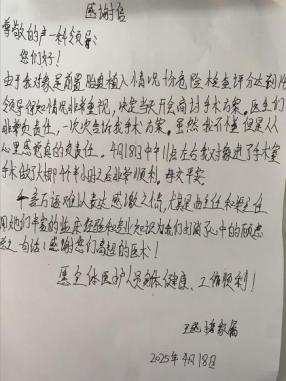 感谢信
尊敬的产一科领导:
您们好!
由于我对象是前置胎盘植入情况十分危险检查评分达到10
领导得知情况非常重视,决定当天开会商讨手术方案。医生们
非常负责任,一次次告诉我手术方案。虽然我不懂但是从
心里感觉真的负责任。4月18日中午11点左右我对象进了手术室
手术做了大概1个半小时之后非常顺利。母女平安。
千言万语难以表达感激之情,尤其是 主任和 主任
用她们丰富的临床经验和专业知识为我们打消心中的顾虑
一句话:感谢您们高超的医术!
愿全体医护人员身体健康、工作顺利!
家属
2025年4月18日